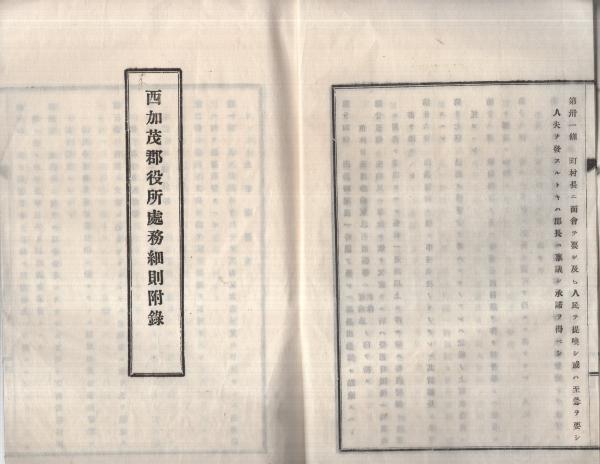 第卅一條 町村長ニ面會ヲ要シ及ヒ人民ヲ提喚シ或ハ至急ヲ要シ
人夫ヲ發スルトキハ郡長ニ稟議シ承諾ヲ得ベシ
西加茂郡役所處務細則附錄